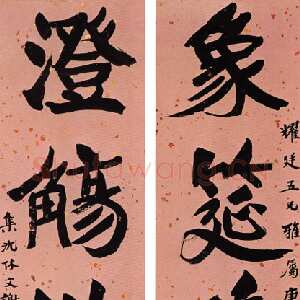 耀廷五兄雅屬庚
象筵
澄觴
集沈休文謝